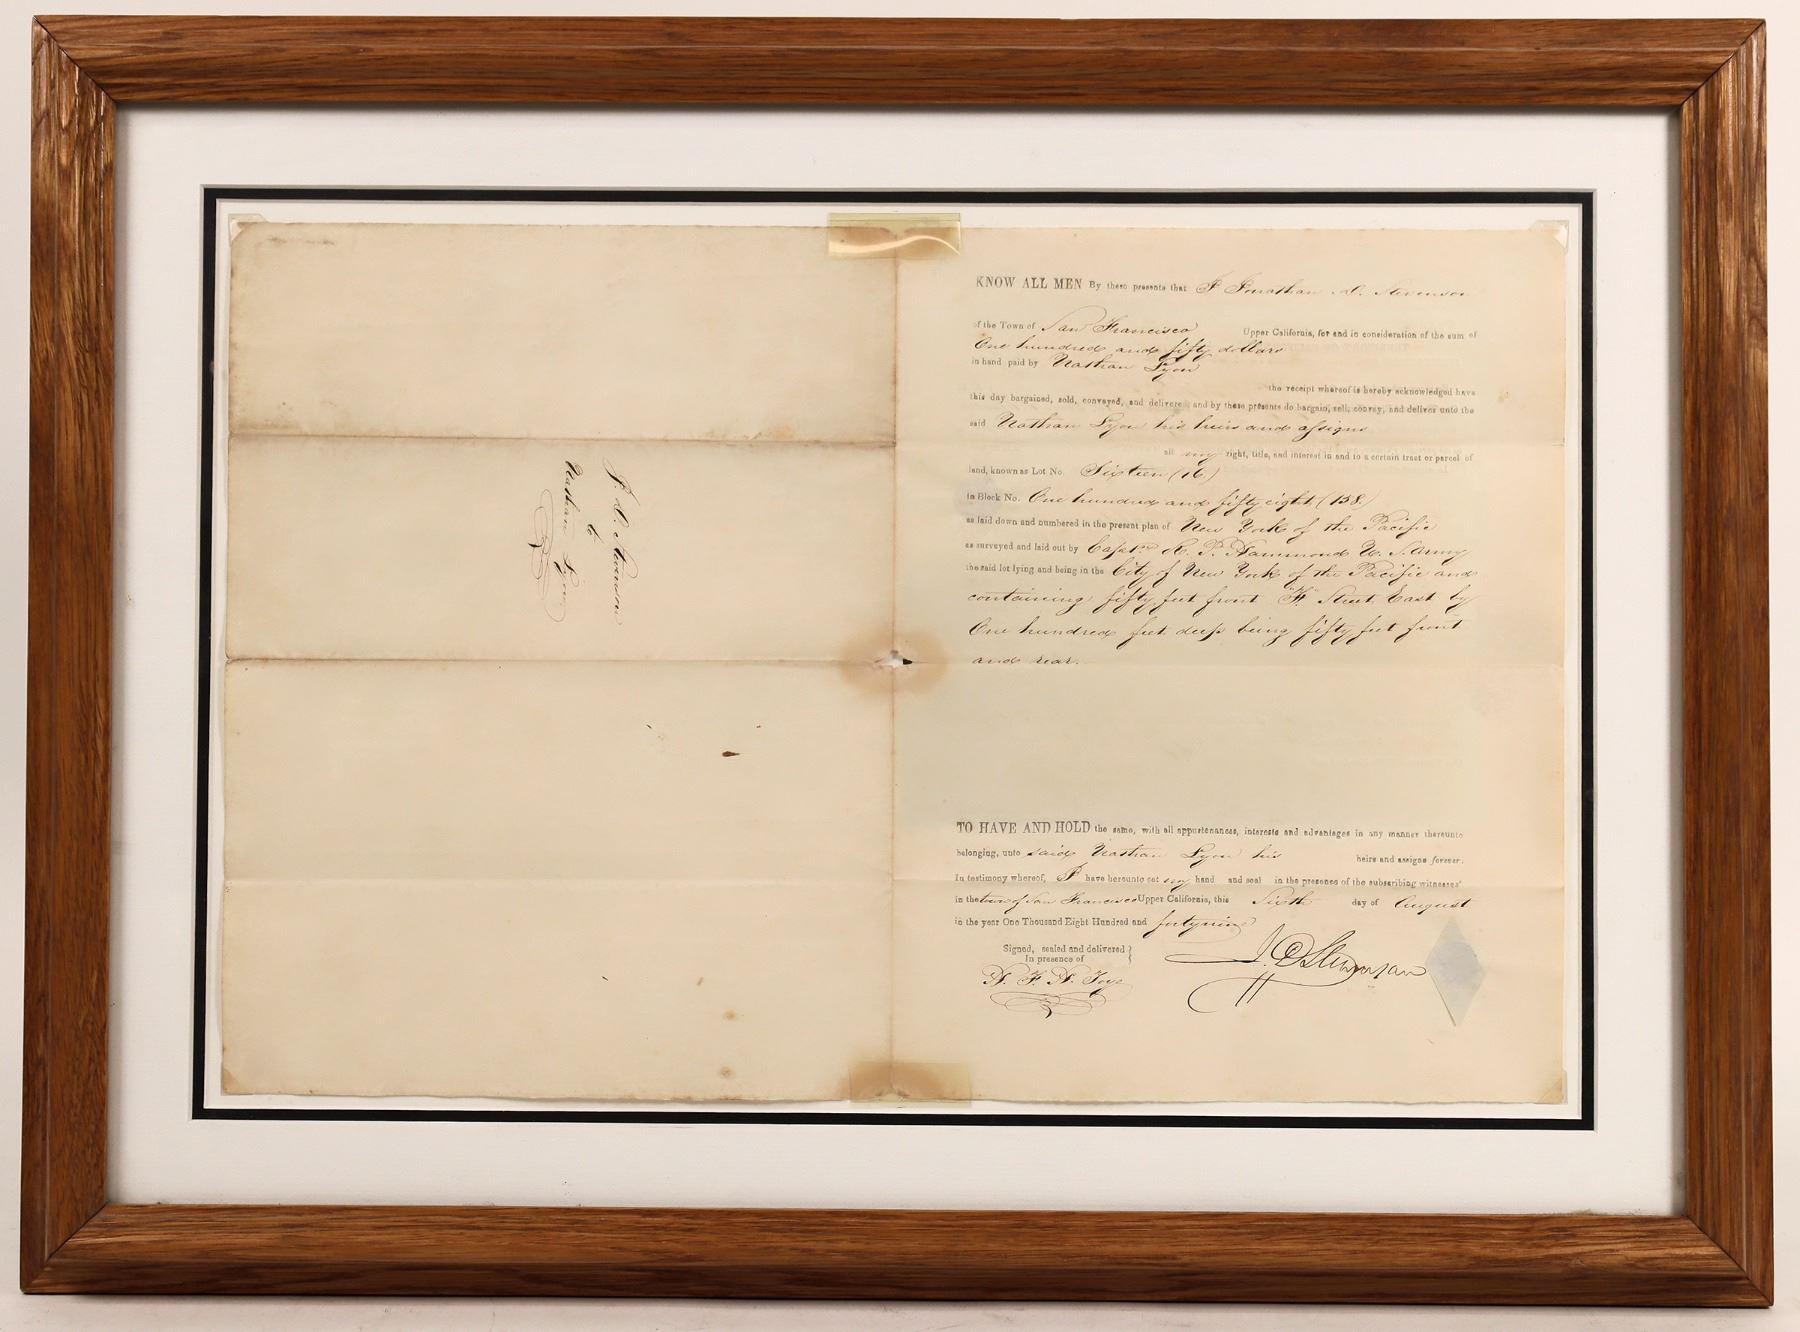 J. D. Stevenson
to
Nathan Lyon
KNOW ALL MEN By these presents that I Jonathan D. Stevenson
of the Town of San Francisco Upper California, for and in consideration of the sum of
One hundred and fifty dollars
in hand paid by Nathan Lyon
the receipt whereof is hereby acknowledged have
this day bargained, sold, conveyed, and delivered, and by these presents do bargain, sell, convey, and deliver unto the
said Nathan Lyon his heirs and assigns
all my right, title, and interest in and to a certain tract or parcel of
land, known as Lot No. Sixteen (16.)
in Block No. One hundred and fifty eight (158.)
as laid down and numbered in the present plan of New York of the Pacific
as surveyed and laid out by Capt. R. P. Hammond U. S. Army
the said lot lying and being in the City of New York of the Pacific and
containing fifty feet front "F" Street East by
One hundred feet deep being fifty feet front
and rear.
TO HAVE AND HOLD the same, with all appurtenances, interests and advantages in any manner thereunto
belonging, unto said Nathan Lyon his heirs and assigns forever.
In testimony whereof, I have hereunto set my hand and seal in the presence of the subscribing witnesses
in the town of San Francisco Upper California, this Sixth day of August
in the year One Thousand Eight Hundred and forty nine
Signed, sealed and delivered }
In presence of }
J. D. Stevenson